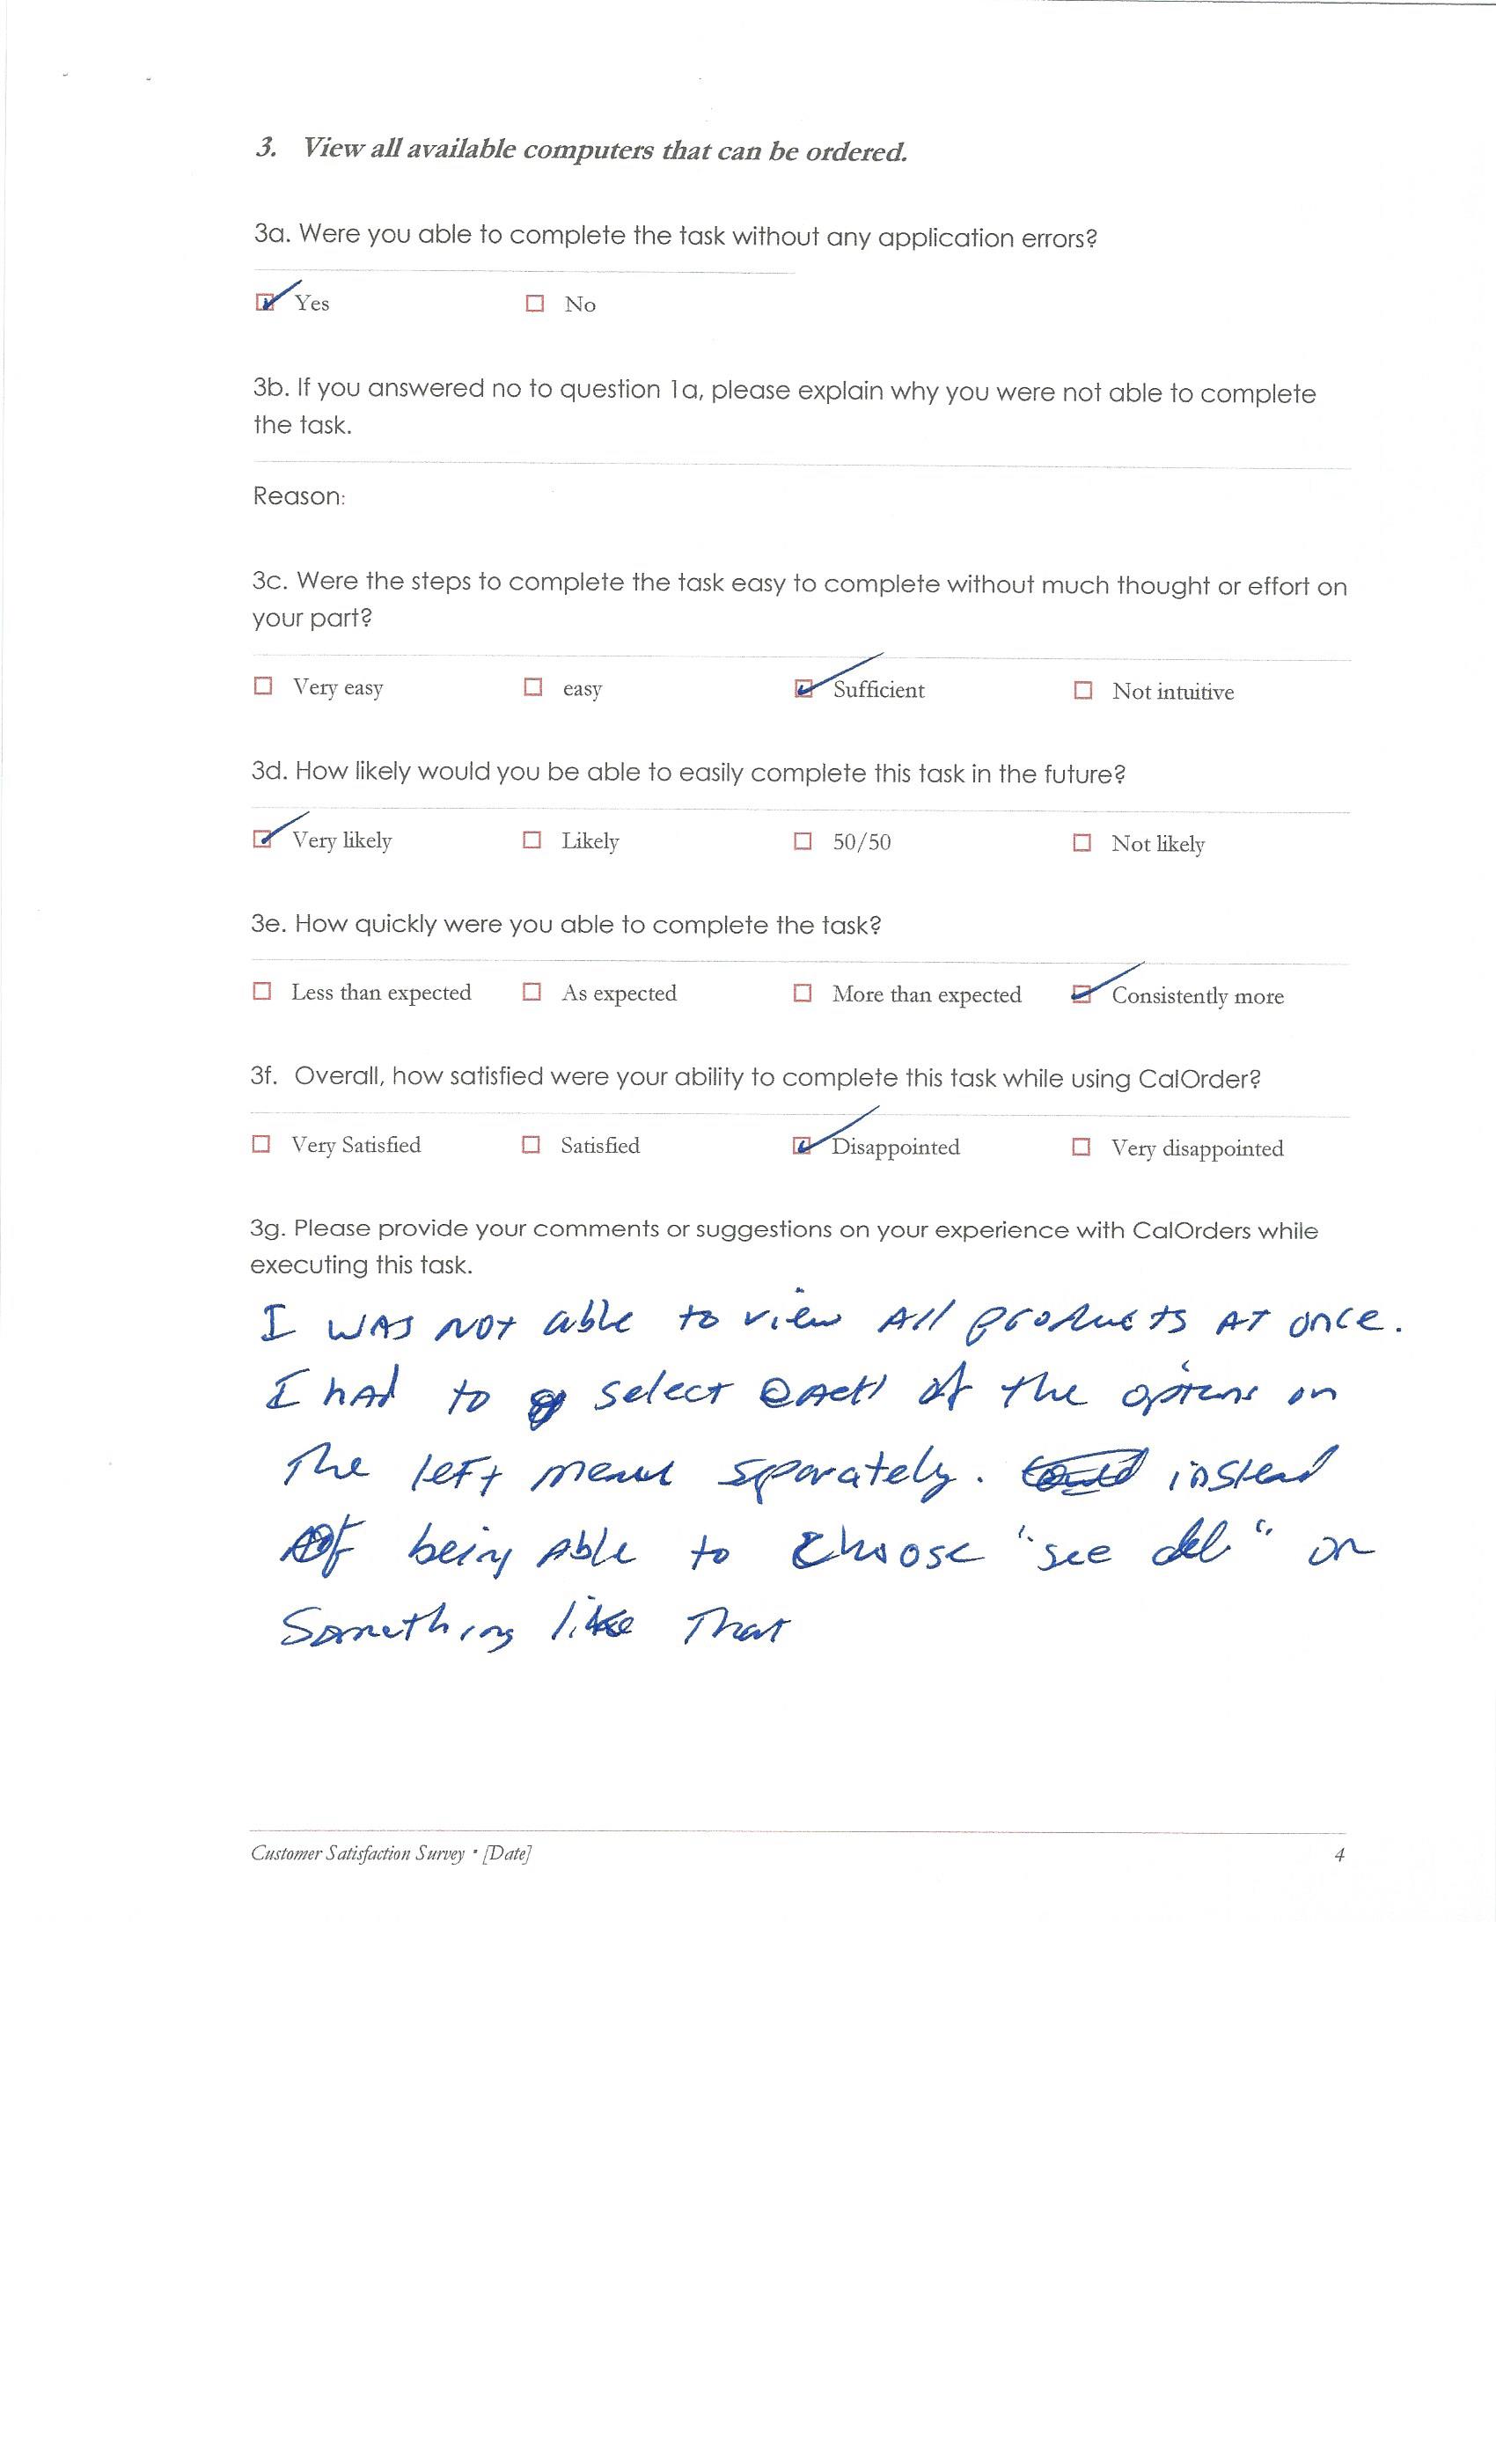 3. View all available computers that can be ordered.
3a. Were you able to complete the task without any application errors?
☑ Yes ☐ No
3b. If you answered no to question 1a, please explain why you were not able to complete
the task.
Reason:
3c. Were the steps to complete the task easy to complete without much thought or effort on
your part?
☐ Very easy ☐ easy ☑ Sufficient ☐ Not intuitive
3d. How likely would you be able to easily complete this task in the future?
☑ Very likely ☐ Likely ☐ 50/50 ☐ Not likely
3e. How quickly were you able to complete the task?
☐ Less than expected ☐ As expected ☐ More than expected ☑ Consistently more
3f. Overall, how satisfied were your ability to complete this task while using CalOrder?
☐ Very Satisfied ☐ Satisfied ☑ Disappointed ☐ Very disappointed
3g. Please provide your comments or suggestions on your experience with CalOrders while
executing this task.
I WAS NOT able to view All products AT once.
I hAd to select eAch of the options on
The left menu sparately. instead
of being Able to choose "see all" or
Something like That
Customer Satisfaction Survey • [Date] 4